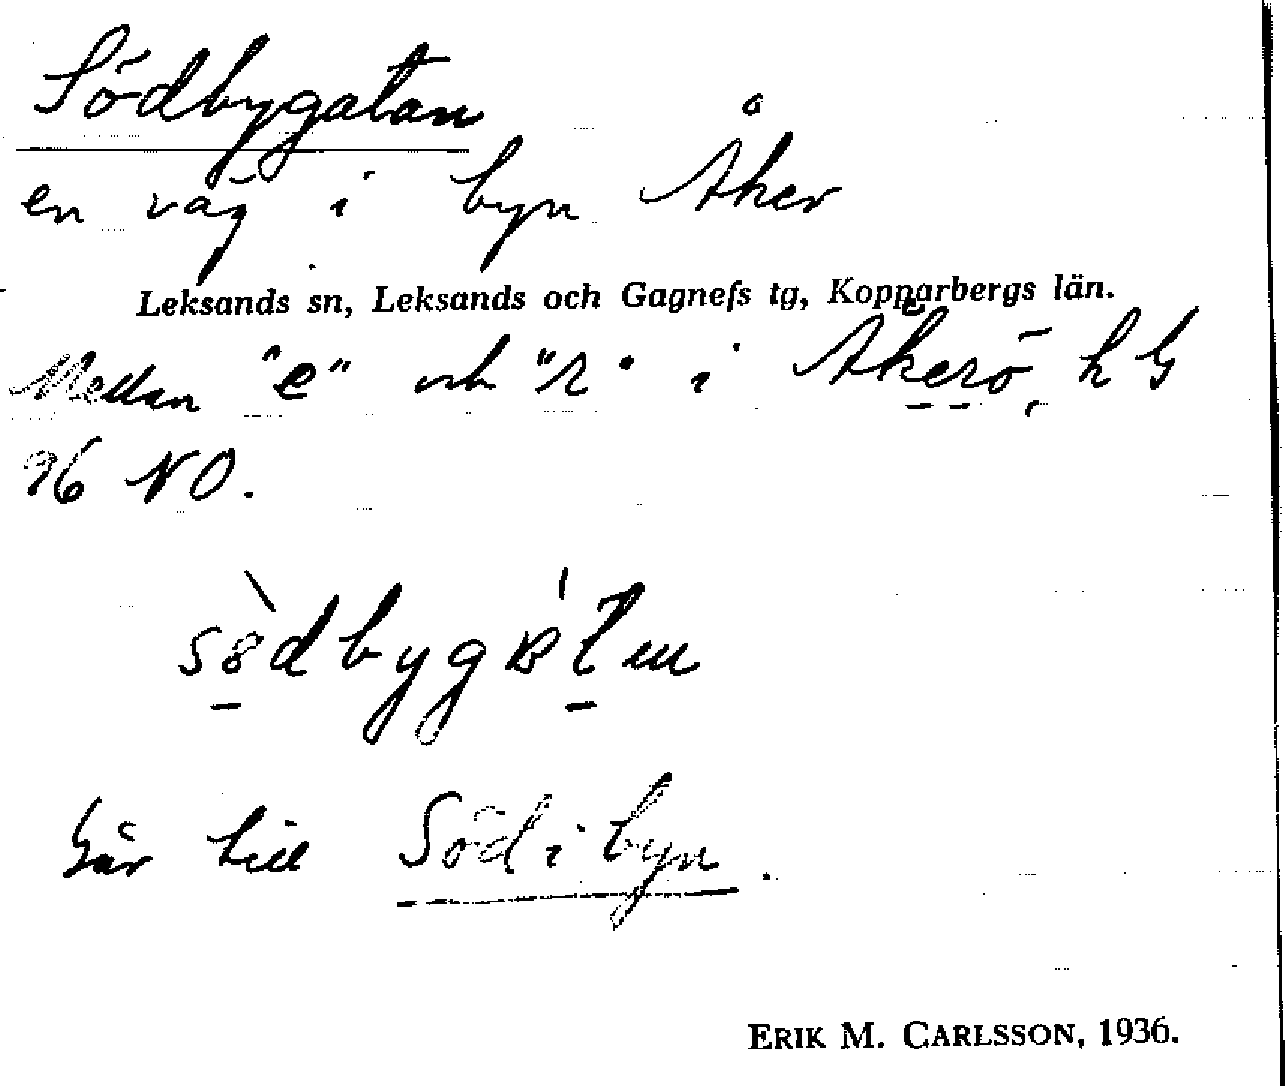 Södbygatan
en väg i byn Åker
Leksands sn, Leksands och Gagnefs tg, Kopparbergs län.
Mellan "e" och "r" i Åkerö, h G
96 NO.
södbygatn
Går till Söd i byn.
ERIK M. CARLSSON, 1936.